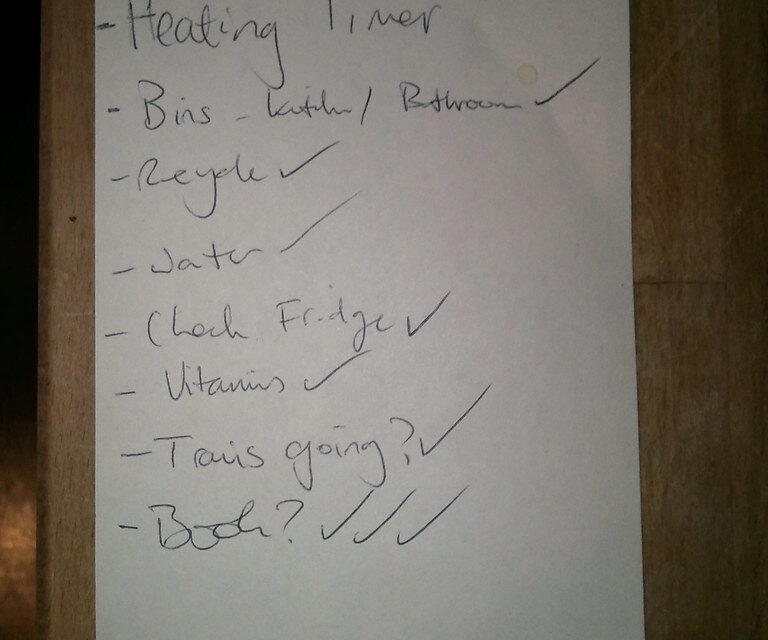 - Heating Timer
- Bins - kitchen / Bathroom ✓
- Recycle ✓
- Water ✓
- Check Fridge ✓
- Vitamins ✓
- Trains going? ✓
- Book? ✓✓✓